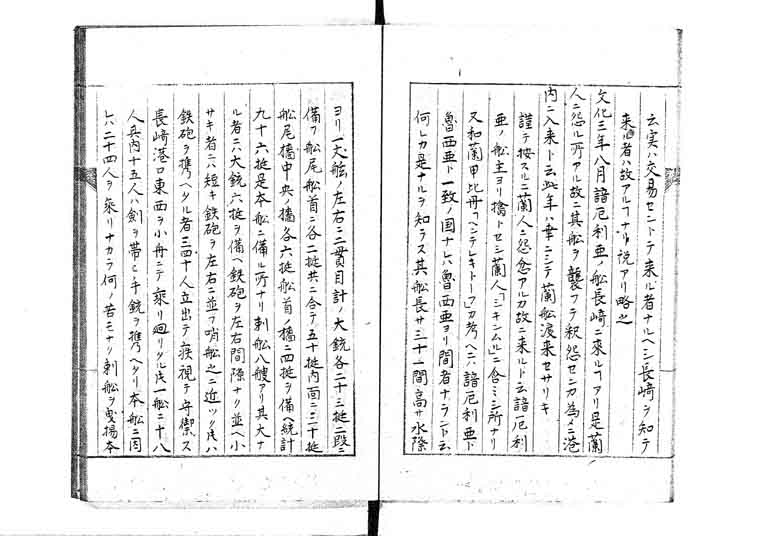 云実ハ交易セントテ来ル者ナルヘシ長崎ヲ知テ
来ル者ハ故アルヿナリノ説アリ略之
文化三年八月諳厄利亜ノ船長崎ニ来ルヿアリ是蘭
人ニ怨ル所アル故ニ其船ヲ襲フテ釈怨センカ為メニ港
内ニ入来ト云此年ハ幸ニシテ蘭船渡来セサリキ
謹テ按スルニ蘭人ニ怨念アルカ故ニ来ルト云諳厄利
亜ノ船主ヨリ擒トセシ蘭人「シキンムル」ニ含ミシ所ナリ
又和蘭甲比丹「ヘンデレキドーフ」カ考ヘニハ諳厄利亜ト
魯西亜ト一致ノ国ナレハ魯西亜ヨリ間者ナラント云
何レカ是ナルヲ知ラス其船長サ三十一間高サ水際
ヨリ一丈船ノ左右ニ二貫目計ノ大銃各二十三挺二段ニ
備フ船尾船首ニ各二挺共ニ合テ五十挺内面ニ三十挺
船尾檣中央ノ檣各六挺船首ノ檣ニ四挺ヲ備ヘ統計
九十六挺是本船ニ備ル所ナリ刺船八艘アリ其大ナ
ル者ニハ大銃六挺ヲ備ヘ鉄砲ヲ左右間隙ナク並ヘ小
サキ者ニハ短キ鉄砲ヲ左右ニ並フ哨船之ニ近ツク氏ハ
鉄砲ヲ携ヘタル者三四十人立出テ疾視テ守禦ス
長崎港口東西ヲ小舟ニテ乗リ廻リタル氏一船ニ十八
人兵内十五人ハ剣ヲ帯ヒ手銃ヲ携ヘタリ本船ニ同
ハ二十四人ヲ乗リナカラ何ノ苦モナク刺船ヲ曳揚本